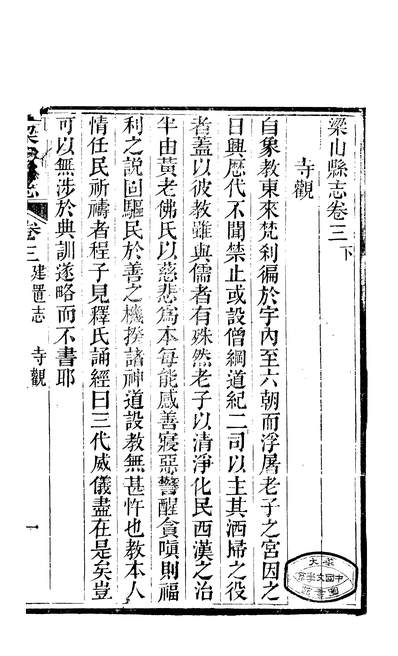 梁山縣志卷三下
寺觀
自象教東來梵刹徧於宇內至六朝而浮屠老子之宮因之
日興歷代不聞禁止或設僧綱道紀二司以主其洒埽之役
者蓋以彼教雖與儒者有殊然老子以清淨化民西漢之治
半由黃老佛氏以慈悲爲本每能感善寢惡警醒貪嗔則福
利之說囘驅民於善之機揆諸神道設教無甚忤也教本人
情任民祈禱者程子見釋氏誦經曰三代威儀盡在是矣豈
可以無涉於典訓遂略而不書耶
梁山縣志 卷三 建置志 寺觀 一
大
中國文學系
圖書館